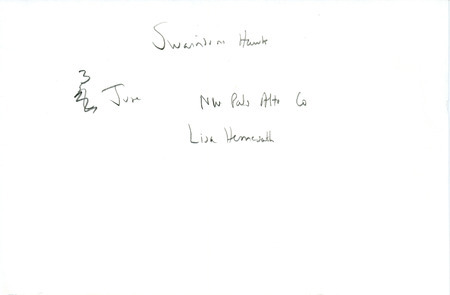 Swainson Hawk
3
June NW Palo Alto Co
Lisa